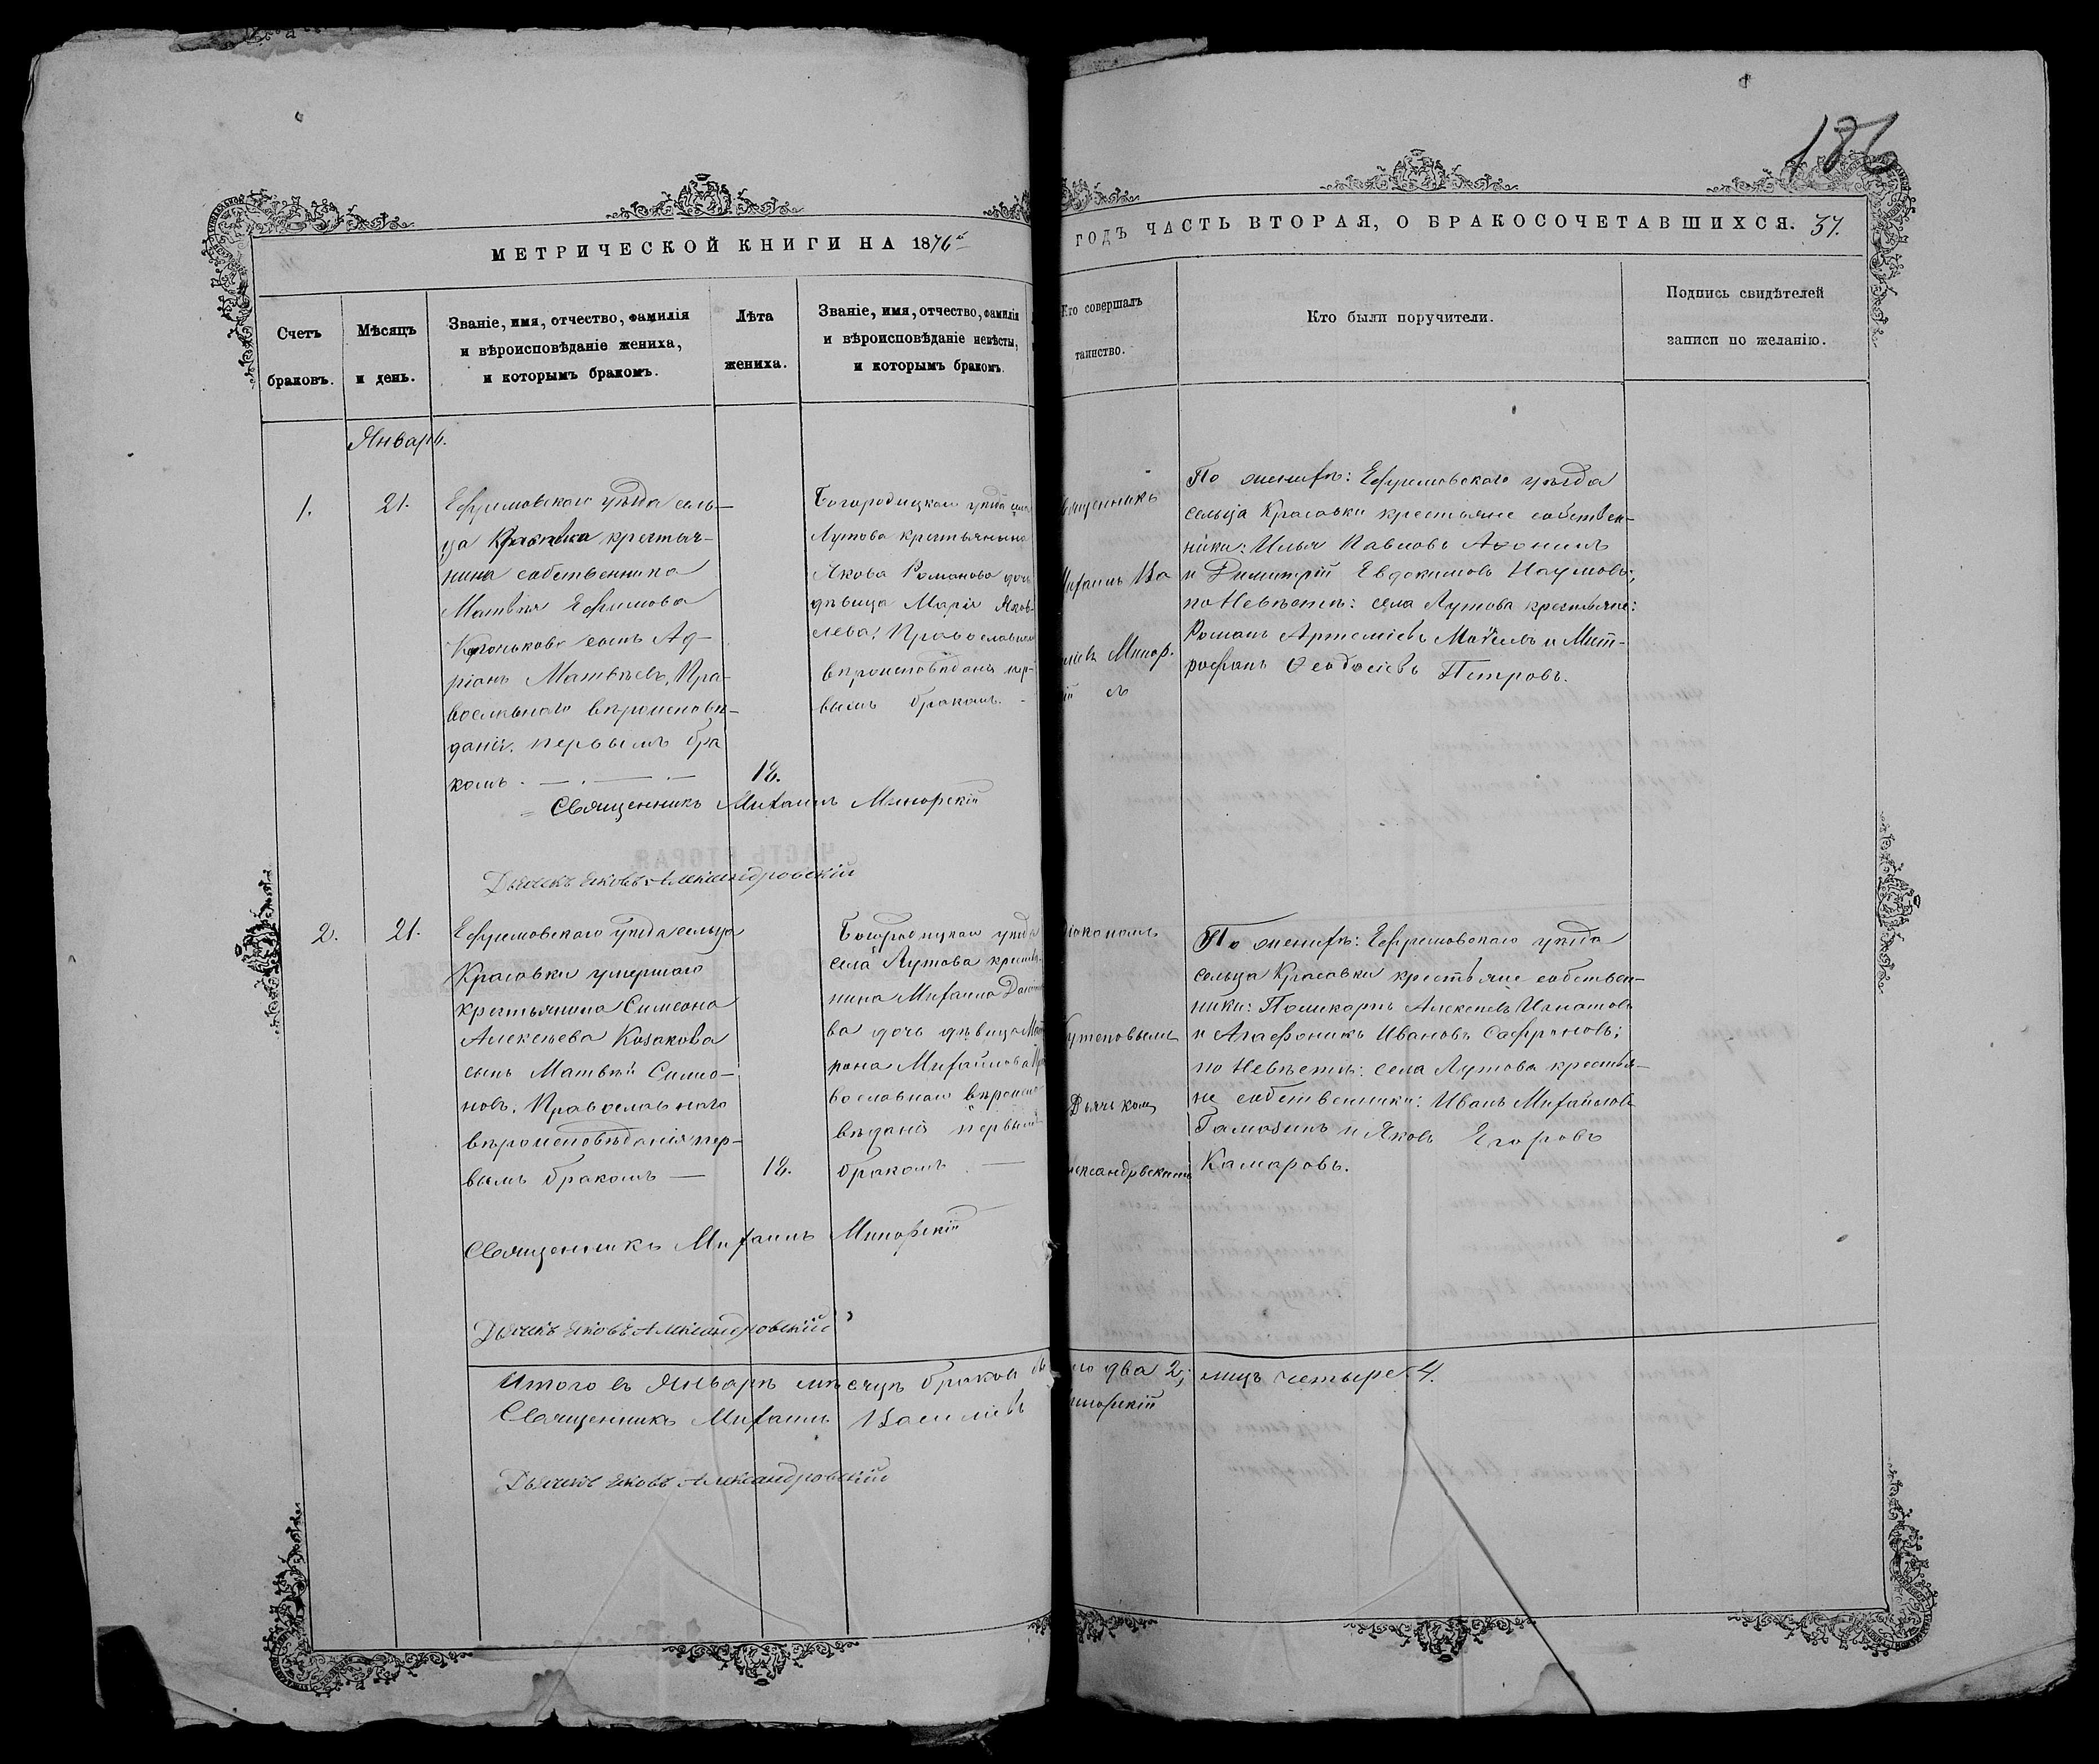 186
МЕТРИЧЕСКОЙ КНИГИ НА 1876й
ГОДЪ ЧАСТЬ ВТОРАЯ, О БРАКОСОЧЕТАВШИХСЯ. 37.
Счетъ
браковъ.
Мѣсяцъ
и день.
Званіе, имя, отчество, фамилія
и вѣроисповѣданіе жениха,
и которымъ бракомъ.
Лѣта
жениха.
Званіе, имя, отчество, фамилія
и вѣроисповѣданіе невѣсты,
и которымъ бракомъ.
Кто совершалъ
таинство.
Кто были поручители.
Подпись свидѣтелей
записи по желанію.
Январь.
1.
21.
Ефремовскаго уѣзда сель-
ца Красавки крестья-
нина собственника
Матвѣя Ефимова
сынъ Ад-
ріанъ Матвѣевъ, Пра-
вославнаго вѣроисповѣ-
данія. первымъ бра
комъ.
18.
Богородицкаго уѣзда села
Лутова крестьянина
Якова Романова дочь
дѣвица Марія Яков-
лева; Православнаго
вѣроисповѣданія пер-
вымъ бракомъ.
Священникъ
Михаилъ Ва
сильевъ Минор-
скій съ
По женихѣ: Ефремовскаго уѣзда
сельца Красавки крестьяне собствен-
ники: Илья Павловъ
и Димитрій Евдокимовъ Наумовъ;
по Невѣстѣ: села Лутова крестьяне:
Романъ Артеміевъ и Мит-
рофанъ Ѳеодосіевъ Петровъ.
Священникъ Михаилъ Минорскій
Дьячекъ Яковъ Александровскій
2.
21.
Ефремовскаго уѣзда сельца
Красавки умершаго
крестьянина Симеона
Алексѣева Козакова
сынъ Матвѣй Симео-
новъ, Православнаго
вѣроисповѣданія пер-
вымъ бракомъ
18.
Богородицкаго уѣзда
села Лутова крестья-
нина Михаила
ва дочь дѣвица Мат
рона Михайлова Пра
вославнаго вѣроиспо
вѣданія первымъ
бракомъ.
діакономъ
Кутеповымъ
Дьячкомъ
Александровскимъ
По женихѣ: Ефремовскаго уѣзда
сельца Красавки крестьяне собствен-
ники: Поликарпъ Алексѣевъ Игнатовъ
и Агафоникъ Ивановъ Сафроновъ;
по Невѣстѣ: села Лутова крестья-
не собственники: Иванъ Михайловъ
и Яковъ Егоровъ
Камаровъ.
Священникъ Михаилъ Минорскій
Дьячекъ Яковъ Александровскій
Итого въ Январѣ мѣсяцѣ браковъ было два 2; лицъ четыре 4.
Священникъ Михаилъ Василіевъ Минорскій
Дьячекъ Яковъ Александровскій